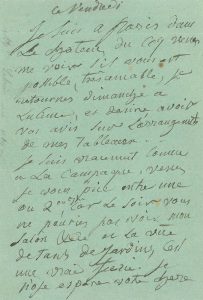 Ce Vendredi
Je suis à Paris dans
la douceur du coq venez
me voir s'il vous est
possible, très aimable, je
retournes dimanche a
Lucienne, et désire avoir
vos avis sur l'arrangement
de mes tableaux.
Je suis vraiment comme
a La Campagne, venez
je vous prie entre une
ou 2 car Le Soir vous
ne pourriez pas voir mon
Salon Clair et la vue
de tants de Jardins, c'est
une vraie féerie. Je
nose espérer votre chère